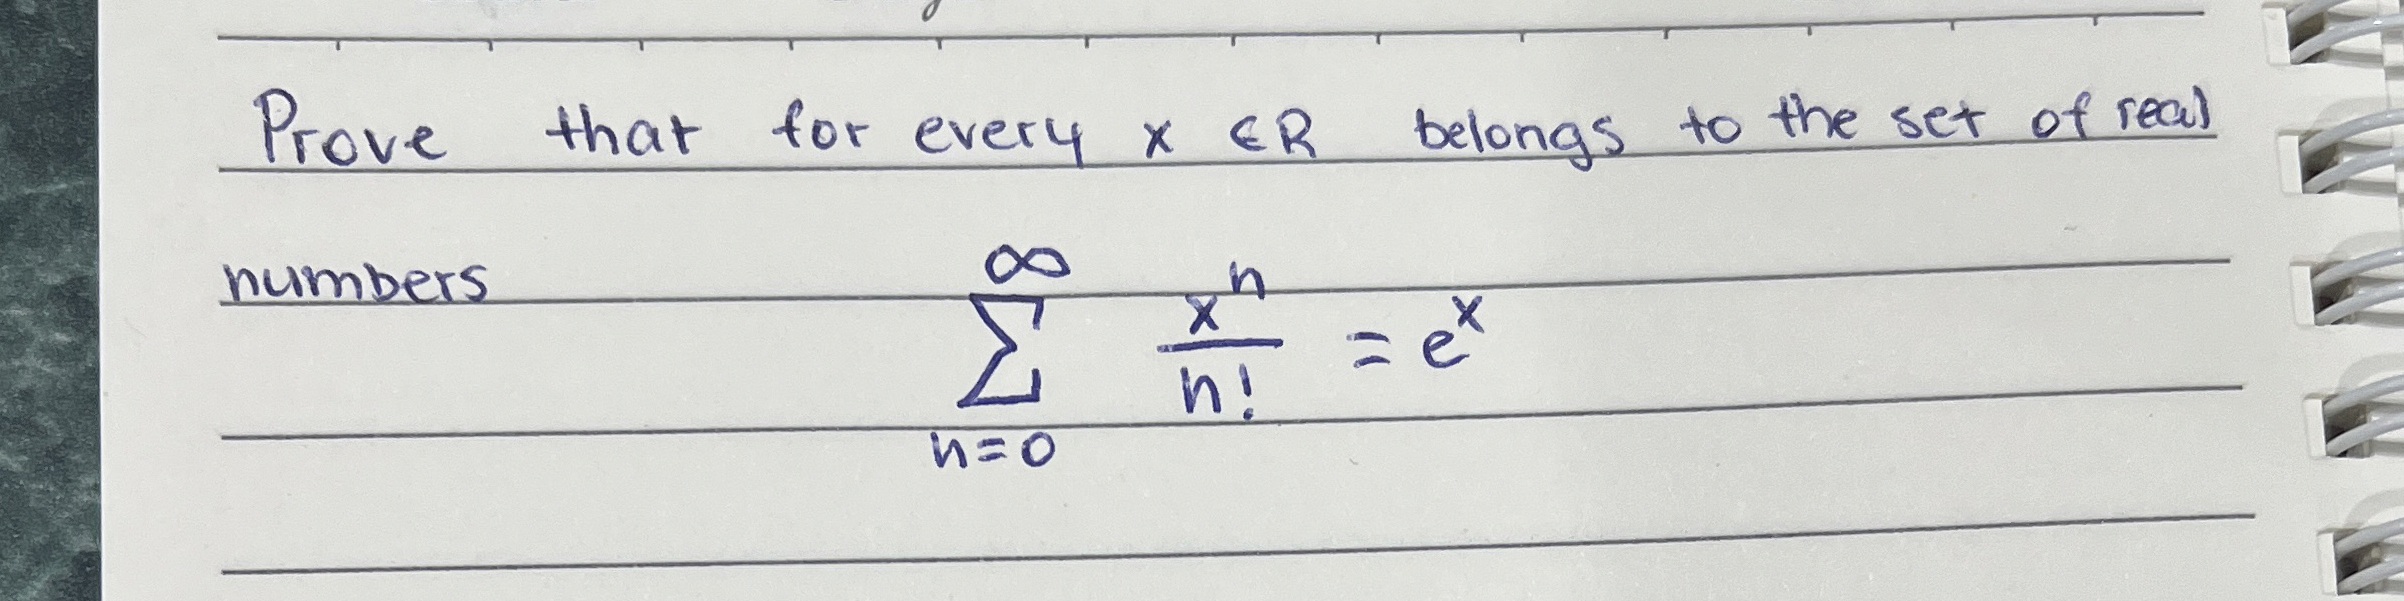 Prove that for every x ∈ R belongs to the set of real
numbers
∞
∑ xⁿ/n! = eˣ
n=0